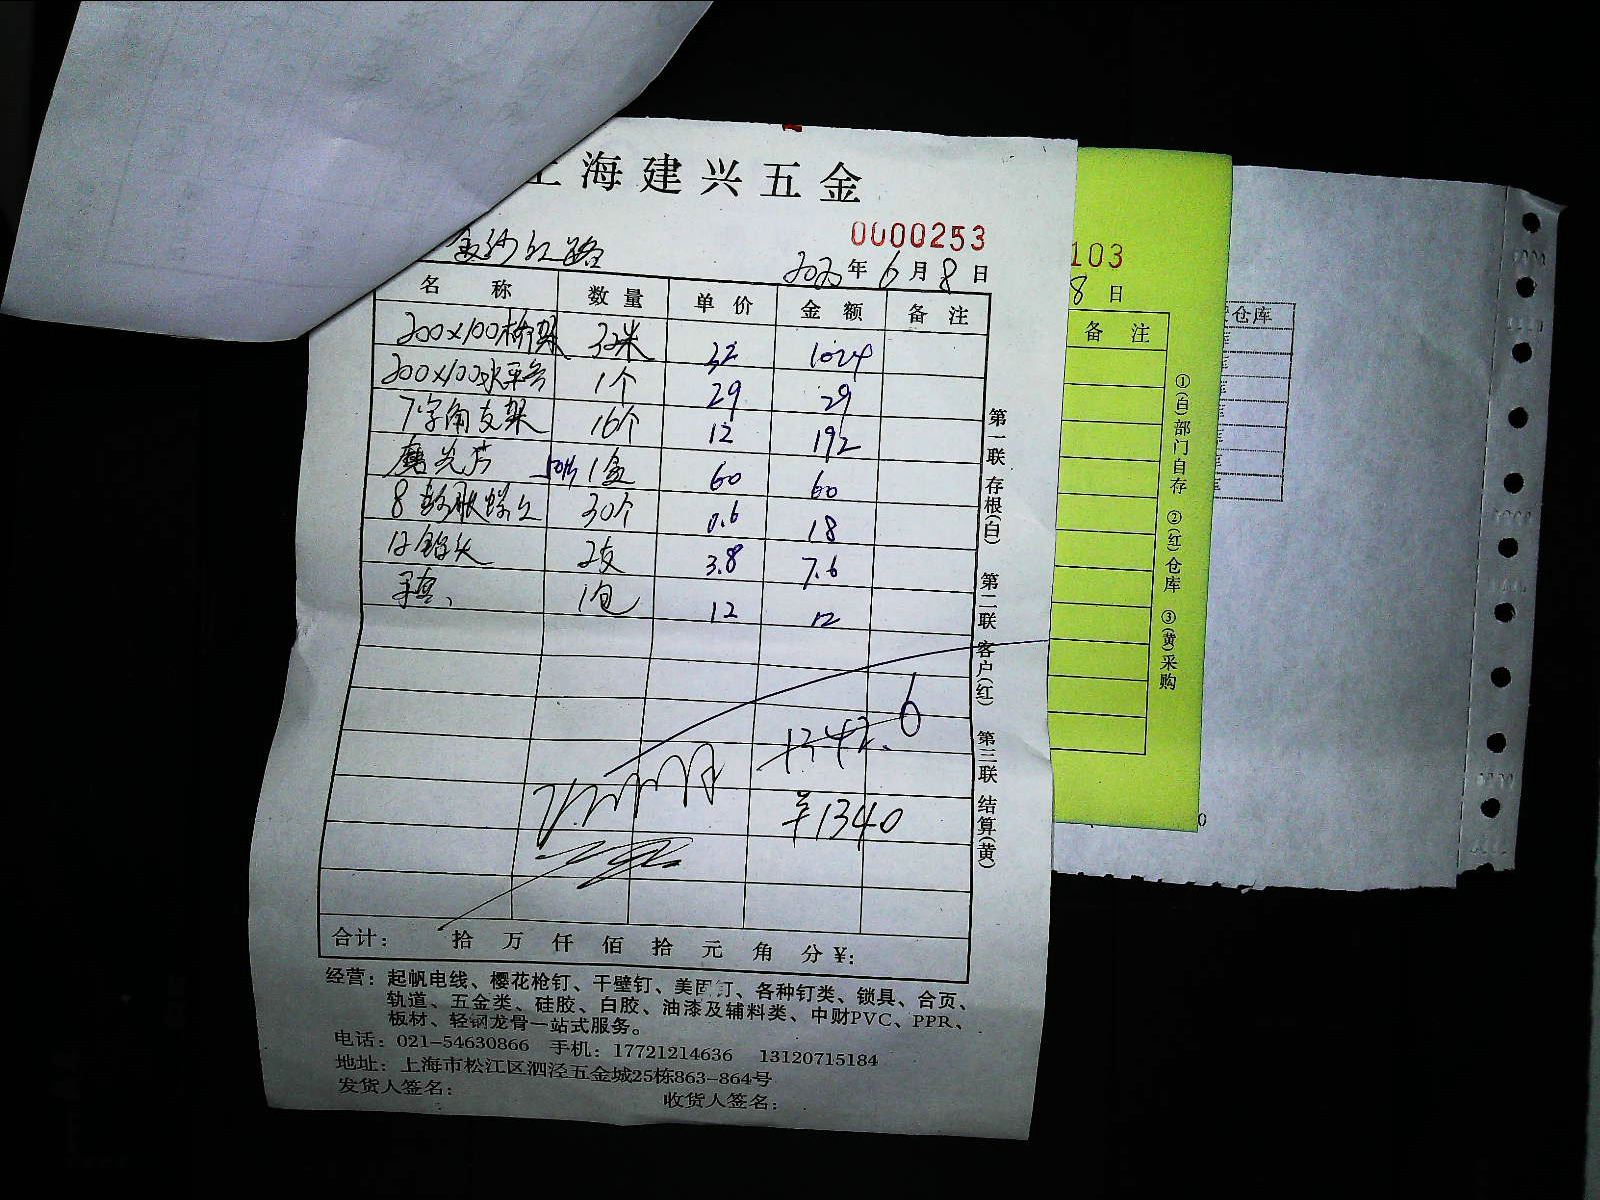 上海建兴五金
0000253
金沙江路
2020年6月8日
名称 数量 单价 金额 备注
200x100桥架 32米 32 1024
200x100水平弯 1个 29 29
7字角支架 16个 12 192
磨光片 50片 1盒 60 60
8 螺丝 30个 0.6 18
12钻头 2支 3.8 7.6
手套、 1包 12 12
1342.6
¥1340
合计: 拾 万 仟 佰 拾 元 角 分 ¥:
第一联 存根(白) 第二联 客户(红) 第三联 结算(黄)
经营: 起帆电线、樱花枪钉、干壁钉、美固钉、各种钉类、锁具、合页、
轨道、五金类、硅胶、白胶、油漆及辅料类、中财PVC、PPR、
板材、轻钢龙骨一站式服务。
电话: 021-54630866 手机: 17721214636 13120715184
地址: 上海市松江区泗泾五金城25栋863-864号
发货人签名: 收货人签名:
103
8日
备注
①(白)部门自存 ②(红)仓库 ③(黄)采购
仓库